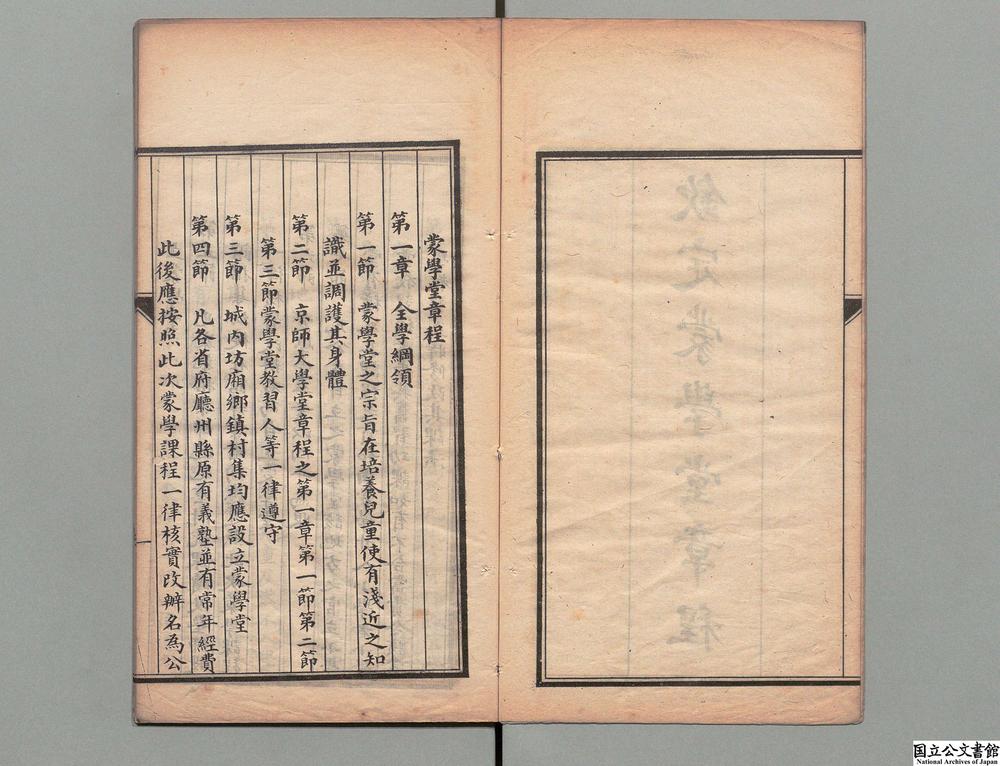 欽定蒙學堂章程
蒙學堂章程
第一章　全學綱領
第一節　蒙學堂之宗旨在培養兒童使有淺近之知
識並調護其身體
第二節　京師大學堂章程之第一章第一節第二節
第三節蒙學堂教習人等一律遵守
第三節　城內坊廂鄉鎮村集均應設立蒙學堂
第四節　凡各省府廳州縣原有義塾並有常年經費
此後應按照此次蒙學課程一律核實改辦名為公
国立公文書館
National Archives of Japan